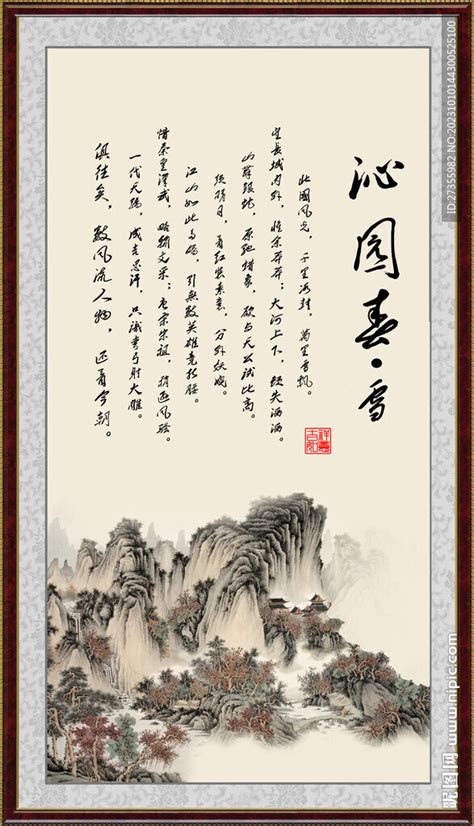 沁园春·雪
北國风光，千里冰封，萬里雪飘。
望長城内外，惟余莽莽；大河上下，顿失滔滔。
山舞银蛇，原驰蜡象，欲与天公试比高。
须晴日，看红装素裹，分外妖娆。
江山如此多嬌，引無數英雄竞折腰。
惜秦皇漢武，略输文采；唐宗宋祖，稍逊风骚。
一代天骄，成吉思汗，只識弯弓射大雕。
俱往矣，數风流人物，还看今朝。
ID:27355982 NO:20231010144300525100
昵图网 www.nipic.com